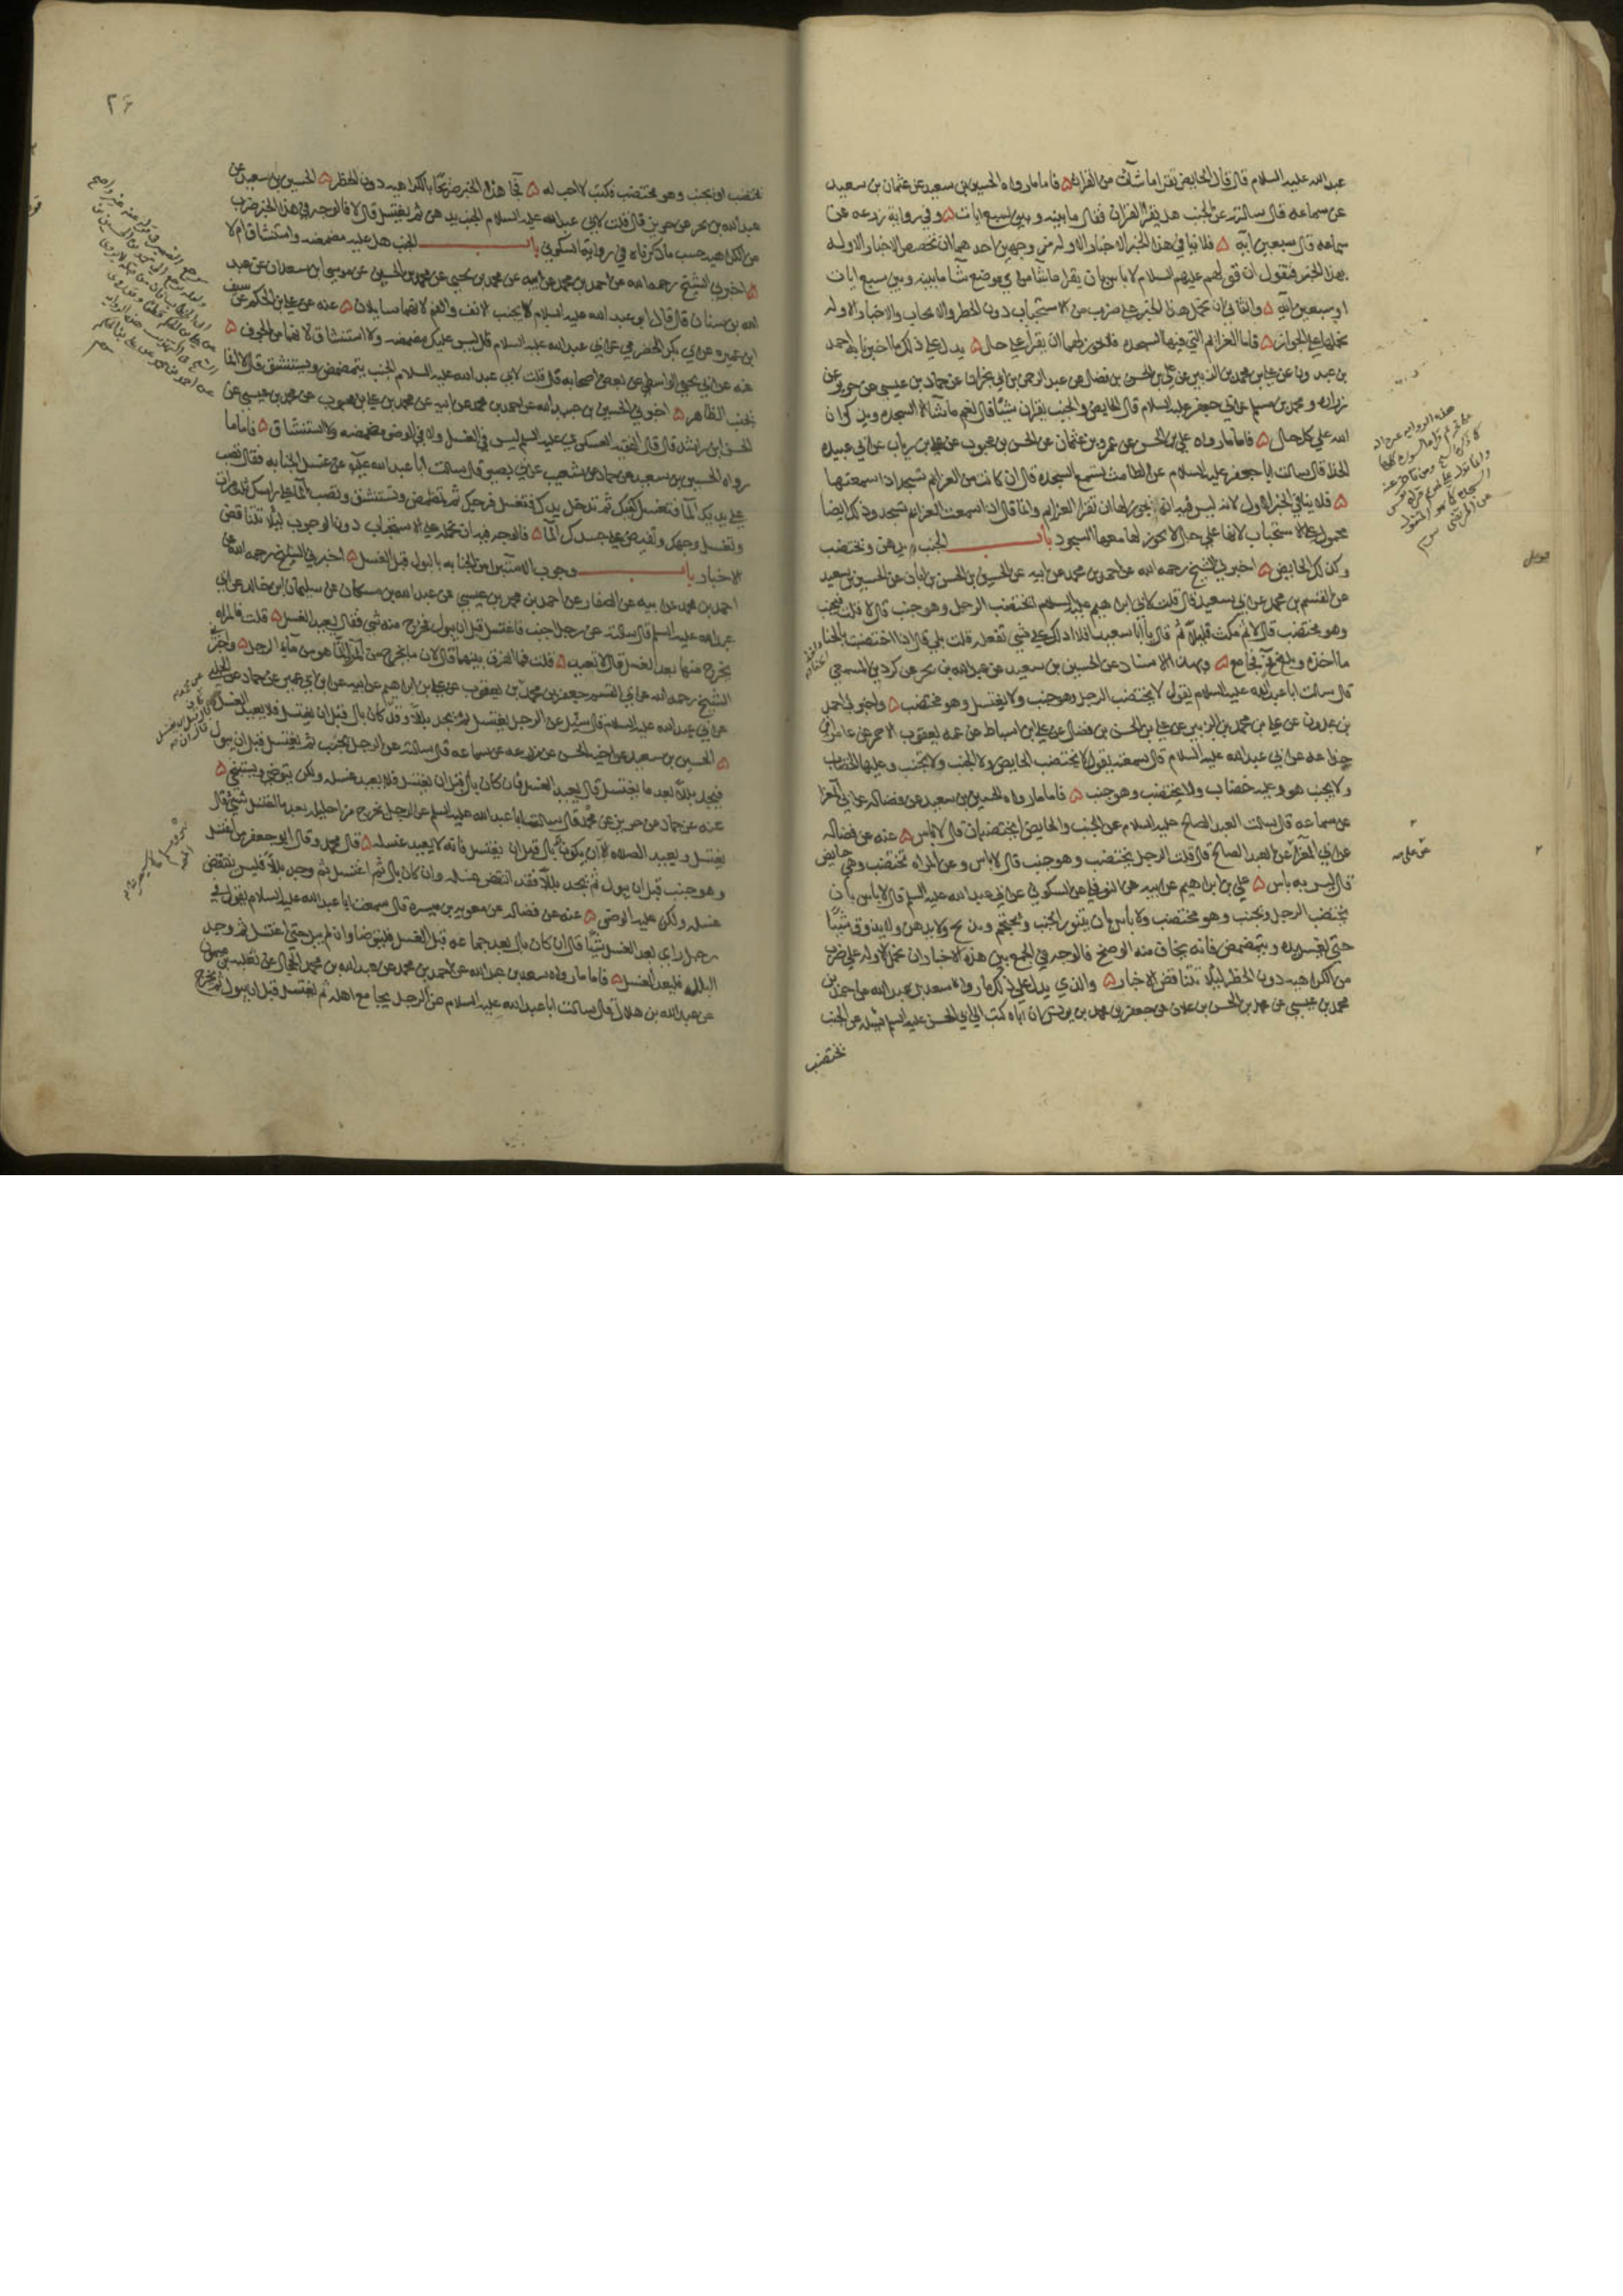 عبد الله عليه السلام قال قال الحايض تقرا ما شات من القران فاما ما رواه الحسين بن سعيد عن عثمان بن سعيد
عن سماعه قال سالته عن الجنب هل يقرا القران فقال ما بينه وبين سبع ايات وفي رواية زرعه عن
سماعه قال سبعين ايه فلا ينافي هذا الخبر الاخبار الاوله من وجهين احدهما ان نخصص الاخبار الاوله
بهذا الخبر فنقول ان قولهم عليهم السلام لا باس ان يقرا ما شا من اي موضع شا ما بينه وبين سبع ايات
او سبعين ايه والثاني ان نحمل هذا الخبر على ضرب من الاستحباب دون الحظر والايجاب والاخبار الاوله
نحملها على الجواز فاما العزايم التي فيها السجده فلا يجوز لهما ان يقرا على حال يدل على ذلك ما اخبرنا به احمد
بن عبدون عن علي بن محمد بن الزبير عن علي بن الحسن بن فضال عن عبد الرحمن بن ابي نجران عن حماد بن عيسى عن حريز عن
زراره ومحمد بن مسلم عن ابي جعفر عليه السلام قال الحايض والجنب يقران شيئا قال نعم ما شاا الا السجده ويذكران
الله على كل حال فاما ما رواه علي بن الحسن عن عمرو بن عثمان عن الحسن بن محبوب عن علي بن رياب عن ابي عبيده
الحذا قال سالت ابا جعفر عليه السلام عن الطامث تسمع السجده قال ان كانت من العزايم تسجد اذا سمعتها
فلا ينافي الخبر الاول لانه ليس فيه انه يجوز لها ان تقرا العزايم وانما قال اذا سمعت العزايم تسجد وذلك ايضا
محمول على الاستحباب لانها على حال لا يجوز لها معها السجود باب الجنب يدهن ويختضب
وكذلك الحايض اخبرني الشيخ رحمه الله عن احمد بن محمد عن ابيه عن الحسين بن الحسن بن ابان عن الحسين بن سعيد
عن القسم بن محمد عن ابي سعيد قال قلت لابي ابرهيم عليه السلام ايختضب الرجل وهو جنب قال لا قلت فيجنب
وهو مختضب قال لا ثم مكث قليلا ثم قال يا ابا سعيد افلا ادلك على شي تفعله قلت بلى قال اذا اختضبت بالحنا
ما اخذه وبلغ فحينئذ فجامع وبهذا الاسناد عن الحسين بن سعيد عن عبد الله بن بحر عن كردين المسمعي
قال سالت ابا عبد الله عليه السلام يقول لا يختضب الرجل وهو جنب ولا يغتسل وهو مختضب واخبرني احمد
بن عبدون عن علي بن محمد بن الزبير عن علي بن الحسن بن فضال عن علي بن اسباط عن عمه يعقوب الاحمر عن عامر بن
جذاعه عن ابي عبد الله عليه السلام قال سمعته يقول لا تختضب الحايض ولا الجنب ولا تجنب وعليها الخضاب
ولا يجنب هو وعليه خضاب ولا يختضب وهو جنب فاما ما رواه الحسين بن سعيد عن فضاله عن ابي المعزا
عن سماعه قال سالت العبد الصالح عليه السلام عن الجنب والحايض ايختضبان قال لا باس عنه عن فضاله
عن ابي المعزا عن العبد الصالح قال قلت الرجل يختضب وهو جنب قال لا باس وعن المراه تختضب وهي حايض
قال ليس به باس علي بن ابراهيم عن ابيه عن النوفلي عن السكوني عن ابي عبد الله عليه السلم قال لا باس بان
يختضب الرجل ويجنب وهو مختضب ولا باس بان يتنور الجنب ويحتجم ويذبح ولا يدهن ولا يذوق شيئا
حتى يغسل يده ويتمضمض فانه يخاف منه الوضح فالوجه في الجمع بين هذه الاخبار ان نحمل الاوله على ضرب
من الكراهيه دون الحظر ليلا تتناقض الاخبار والذي يدل على ذلك ما رواه سعد بن عبد الله عن احمد بن
محمد بن عيسى عن محمد بن الحسن بن علان عن جعفر بن محمد بن يونس ان اباه كتب الى ابي الحسن عليه السلم يساله عن الجنب
يختضب
٢٦
يختضب او يجنب وهو مختضب فكتب لا احب له فجا هذا الخبر صريحا بالكراهيه دون الحظر الحسين بن سعيد عن
عبد الله بن بحر عن حريز قال قلت لابي عبد الله عليه السلام الجنب يدهن ثم يغتسل قال لا فالوجه في هذا الخبر ضرب
من الكراهيه حسب ما ذكرناه في رواية السكوني باب الجنب هل عليه مضمضه واستنشاق ام لا
اخبرني الشيخ رحمه الله عن احمد بن محمد عن ابيه عن محمد بن يحيى عن محمد بن الحسين عن موسى بن سعدان عن عبد
الله بن سنان قال قال ابو عبد الله عليه السلام لا يجنب الانف والفم لانهما سايلان عنه عن علي بن الحكم عن سيف
ابن عميره عن ابي بكر الحضرمي عن ابي عبد الله عليه السلام قال ليس عليك مضمضه ولا استنشاق لانهما من الجوف
عنه عن ابي يحيى الواسطي عن بعض اصحابه قال قلت لابي عبد الله عليه السلام الجنب يتمضمض ويستنشق قال لا انما
يجنب الظاهر اخبرني الحسين بن عبيد الله عن احمد بن محمد عن ابيه عن محمد بن علي بن محبوب عن محمد بن عيسى عن
الحسن بن راشد قال قال الفقيه العسكري عليه السلم ليس في الغسل ولا في الوضو مضمضه ولا استنشاق فاما ما
رواه الحسين بن سعيد عن حماد عن شعيب عن ابي بصير قال سالت ابا عبد الله عليه عن غسل الجنابه فقال تصب
على يديك الما فتغسل كفيك ثم تدخل يدك فتغسل فرجك ثم تمضمض وتستنشق وتصب الما على راسك ثلث مرات
وتغسل وجهك وتفيض على جسدك الما فالوجه فيه ان نحمله على الاستحباب دون الوجوب ليلا تتناقض
الاخبار باب وجوب الاستبرا من الجنابه بالبول قبل الغسل اخبرني الشيخ رحمه الله عن
احمد بن محمد عن ابيه عن الصفار عن احمد بن محمد بن عيسى عن عبد الله بن مسكان عن سليمان بن خالد عن ابي
عبد الله عليه السلم قال سالته عن رجل اجنب فاغتسل قبل ان يبول فخرج منه شي فقال يعيد الغسل قلت فالمراه
يخرج منها بعد الغسل قال لا تعيد قلت فما الفرق بينهما قال لان ما يخرج من المراه انما هو من ماء الرجل
الشيخ رحمه الله عن ابي القسم جعفر بن محمد بن يعقوب عن علي بن ابراهيم عن ابيه عن ابن ابي عمير عن حماد عن الحلبي
عن ابي عبد الله عليه السلام قال سئل عن الرجل يغتسل ثم يجد بللا وقد كان بال قبل ان يغتسل فلا يعيد الغسل
الحسين بن سعيد عن اخيه الحسن عن زرعه عن سماعه قال سالته عن الرجل يجنب ثم يغتسل قبل ان يبول
فيجد بللا بعد ما يغتسل قال يعيد الغسل فان كان بال قبل ان يغتسل فلا يعيد غسله ولكن يتوضى ويستنجي
عنه عن حماد عن حريز عن محمد قال سالت ابا عبد الله عليه السلم عن الرجل يخرج من احليله بعد ما اغتسل شي قال
يغتسل ويعيد الصلاه الا ان يكون بال قبل ان يغتسل فانه لا يعيد غسله قال محمد وقال ابو جعفر من اغتسل
وهو جنب قبل ان يبول ثم يجد بللا فقد انتقض غسله وان كان بال ثم اغتسل ثم وجد بللا فليس ينقض
غسله ولكن عليه الوضو عنه عن فضاله عن معويه بن ميسره قال سمعت ابا عبد الله عليه السلام يقول في
رجل راي بعد الغسل شيئا قال ان كان بال بعد جماعه قبل الغسل فليتوضا وان لم يبل حتى اغتسل ثم وجد
البلل فليعد الغسل فاما ما رواه سعد بن عبد الله عن احمد بن محمد عن عبد الله بن محمد الحجال عن ثعلبه بن ميمون
عن عبد الله بن هلال قال سالت ابا عبد الله عليه السلام عن الرجل يجامع اهله ثم يغتسل قبل ان يبول ثم يخرج